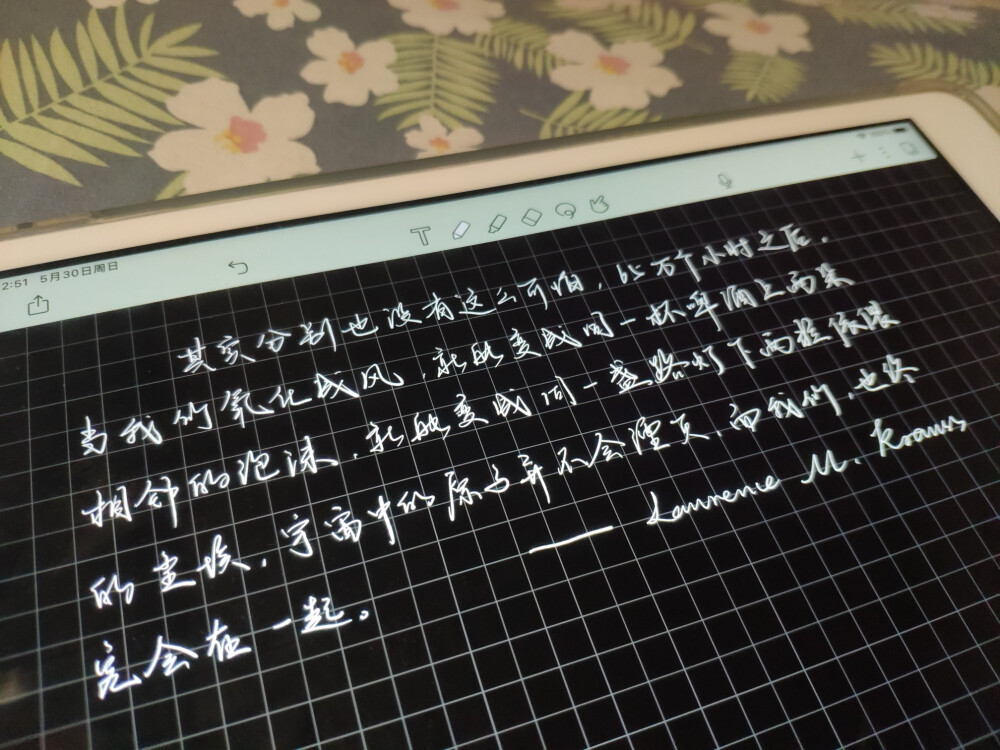 2:51 5月30日周日
T
其实分别也没有这么可怕，65万个小时之后，
当我们氧化成风，就能变成同一杯啤酒上两朵
相邻的泡沫，就能变成同一盏路灯下两粒依偎
的尘埃，宇宙中的原子并不会湮灭，而我们，也终
究会在一起。
—— Lawrence M. Krauss